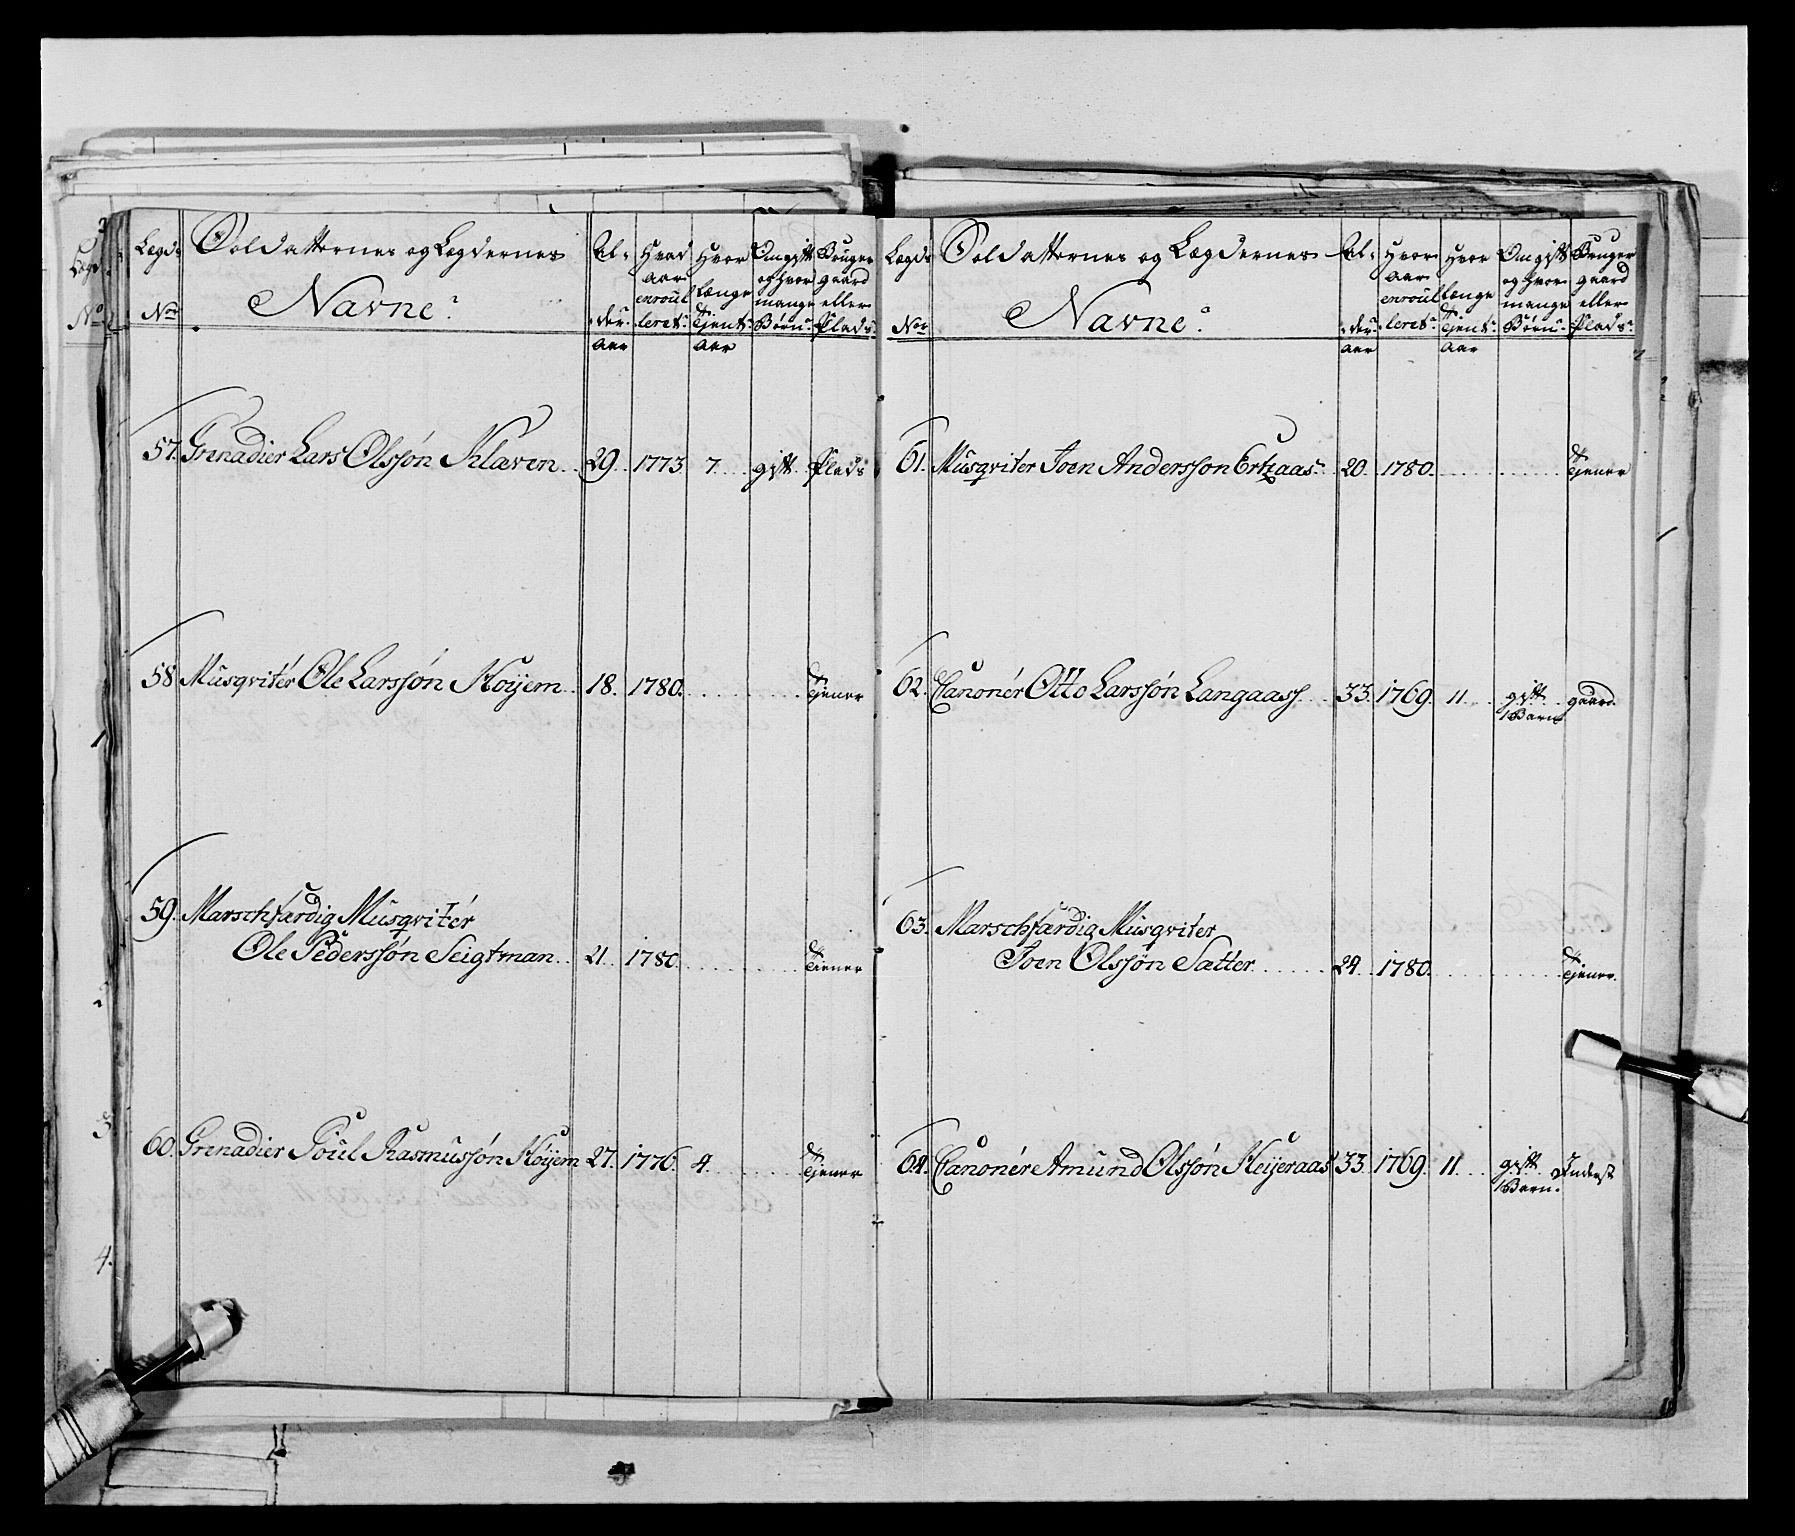 Lægds Nor
Soldatternes og Lægdernes Navne
Al-der aar
Hvad aar enroulleret
Hvor længe Tjent aar
Om gift og hvor mange Børn
Bruger gaard eller Plads
57. Grenadier Lars Olssøn Klæven 29. 1773 7 gift Plads
58 Musqvitér Ole Larssøn Høiyem 18. 1780. Tjener
59. Marschfærdig Musqvitér
Ole Pederssøn Seigtman 21. 1780. Tjener
60. Grenadier Poul Rasmussøn Høiyem 27. 1776. 4. Tjener
Lægds Nor
Soldatternes og Lægdernes Navne
Al-der aar
Hvor aar enroulleret
Hvor længe Tjent aar
Om gift og hvor mange Børn
Bruger gaard eller Plads
61. Musqviter Joen Anderssøn 20. 1780. Tjener
62. Canonér Otto Larssøn Langaass 33. 1769. 11 gift gaard.
1 Barn
63. Marschfærdig Musqviter
Joen Olssøn Sætter 24. 1780. Tjener
64. Canonér Amund Olssøn Heijeraas 33. 1769. 11 gift Inderst
1 Barn.